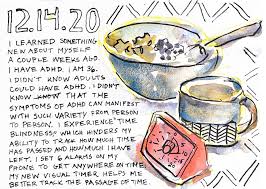 12.14.20
I LEARNED SOMETHING
NEW ABOUT MYSELF
A COUPLE WEEKS AGO.
I HAVE ADHD. I AM 36.
I DIDN'T KNOW ADULTS
COULD HAVE ADHD. I DIDN'T
KNOW THAT THE
SYMPTOMS OF ADHD CAN MANIFEST
WITH SUCH VARIETY FROM PERSON
TO PERSON. I EXPERIENCE "TIME
BLINDNESS" WHICH HINDERS MY
ABILITY TO TRACK HOW MUCH TIME
HAS PASSED AND HOW MUCH I HAVE
LEFT. I SET 6 ALARMS ON MY
PHONE TO GET ANYWHERE ON TIME.
MY NEW VISUAL TIMER HELPS ME
BETTER TRACK THE PASSAGE OF TIME.